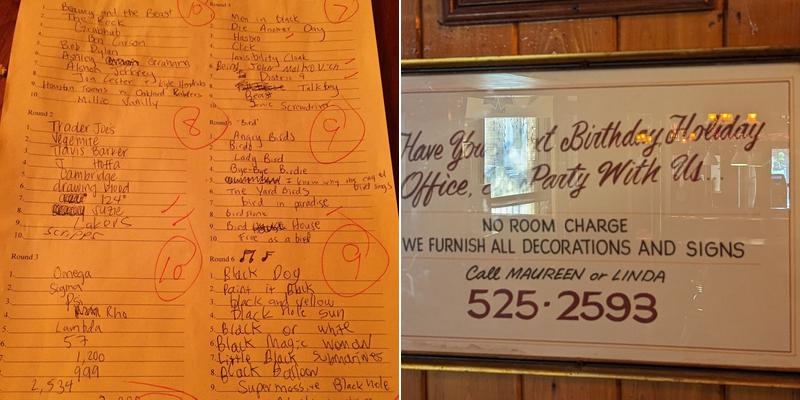 1. Beauty and the Beast
2. The Rock
Grubhub
Ben Carson
Bob Dylan
6. Ashley Graham
7. Alshon Jeffrey
8.
9. Houston Texans vs Oakland Raiders
10. Millie Vanilly
8
Round 2
1. Trader Joes
2. Vegemite
3. Travis Barker
4. J Hoffa
5. Cambridge
6. drawing blood
7. 124
8. Suzie
9. Lakers
10. Scripps
10
Round 3
1. Omega
2. Sigma
3. Psi
4. Rho
5. Lambda
6. 57
7. 1,200
8. 999
2,534
7
1. Men in black
2. Die Another Day
3. Hasbro
4. Click
5. Invisibility Cloak
6. Being John Malkovich
7. District 9
8. Talkboy
9. Beast
10. Sonic Screwdriver
Round 5 "Bird"
9
1. Angry Birds
2. Birds
3. Lady Bird
4. Bye-Bye Birdie
5. I know why the caged bird sings
6. The Yard Birds
7. bird in paradise
8. birdstone
9. Bird House
10. Free as a bird
Round 6
9
1. Black Dog
2. Paint it Black
3. black and yellow
4. Black Hole sun
5. Black or white
6. Black Magic Woman
7. Little Black Submarines
8. Black Balloon
9. Supermassive Black Hole
Have You xt Birthday, Holiday
Office, Party With Us...
NO ROOM CHARGE
WE FURNISH ALL DECORATIONS AND SIGNS
Call MAUREEN or LINDA
525-2593